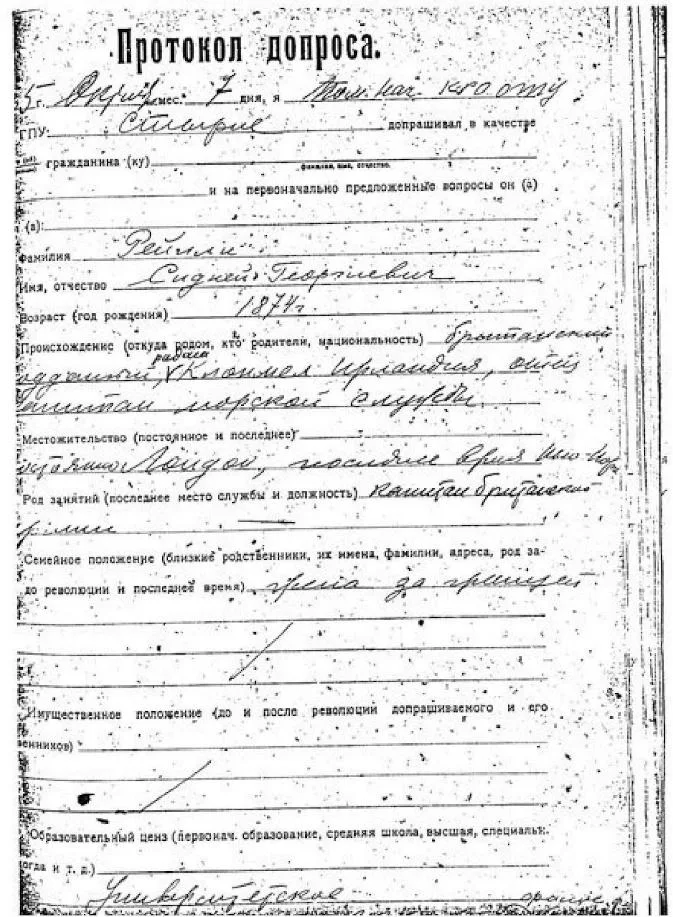 Протокол допроса.
5 г. мес. 7 дня, я Пом. нач. КРО ОГПУ
ГПУ: Стырне допрашивал в качестве
гражданина (ку)
фамилия, имя, отчество.
и на первоначально предложенные вопросы он (а)
(в):
Фамилия Рейлли
Имя, отчество Сидней Георгиевич
Возраст (год рождения) 1874 г.
Происхождение (откуда родом, кто родители, национальность) британский
родился
подданный, Клонмел Ирландия, отец
капитан морской службы
Местожительство (постоянное и последнее)
Лондон, последнее время Нью-Йорк
Род занятий (последнее место службы и должность) капитан британской
армии
Семейное положение (близкие родственники, их имена, фамилии, адреса, род за-
до революции и последнее время) жена за границей
Имущественное положение (до и после революции допрашиваемого и его
венников)
Образовательный ценз (первонач. образование, средняя школа, высшая, специальн.
когда и т. д.)
Университетское